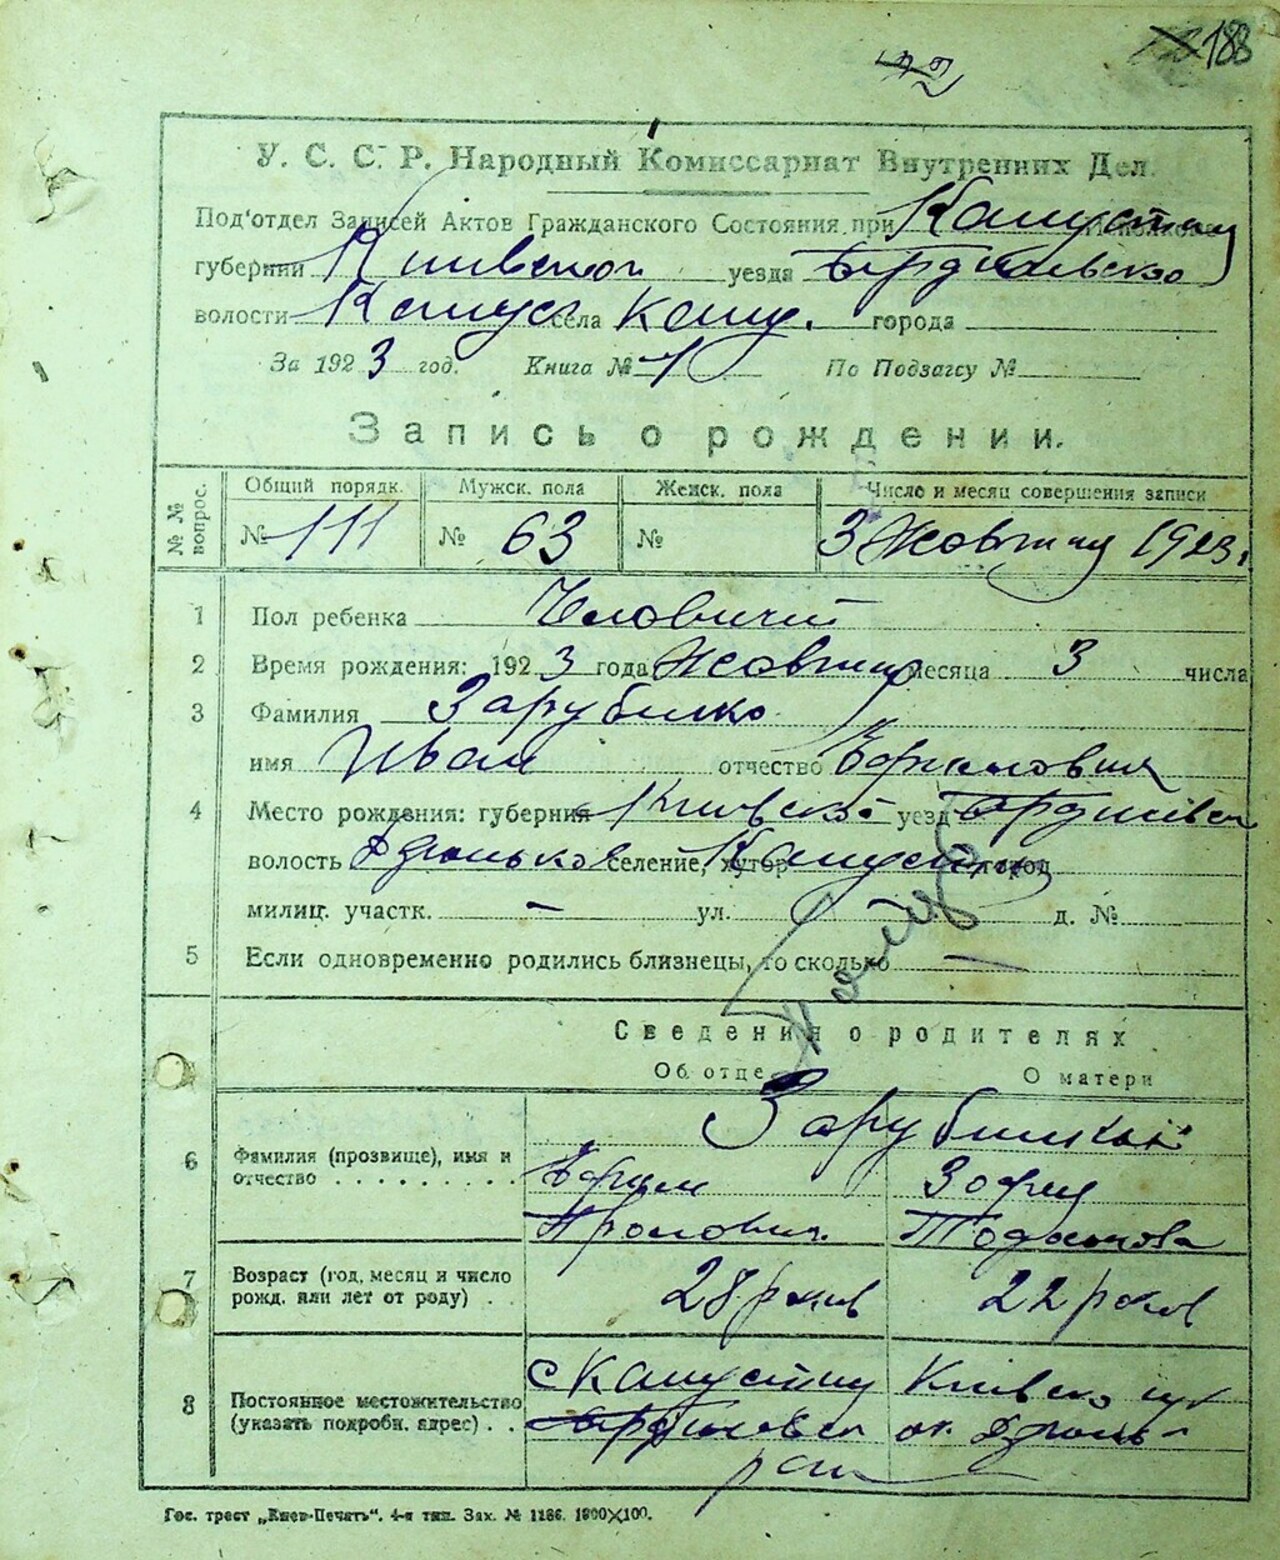 188
У. С. С. Р. Народный Комиссариат Внутренних Дел.
Под'отдел Записей Актов Гражданского Состояния при
губернии Київської уезда Бердичівсько
волости Капуст села Капу. города
За 1923 год. Книга № 1 По Подзагсу №
Запись о рождении.
№№ вопрос.
Общий порядк. Мужск. пола Женск. пола Число и месяц совершения записи
№ 111 № 63 № 3 Жовтня 1923.
1 Пол ребенка Чоловичий
2 Время рождения: 1923 года Жовтня месяца 3 числа
3 Фамилия Зарубинко
имя Иван отчество Ефимович
4 Место рождения: губерния Київсько уезд Бердичівсь
волость селение, хутор город
милиц. участк. — ул. — д. №
5 Если одновременно родились близнецы, то сколько —
Сведения о родителях
Об отце О матери
Зарубинки
6 Фамилия (прозвище), имя и Ефим Зофия
отчество
7 Возраст (год, месяц и число 28 років 22 років
рожд. или лет от роду)
8 Постоянное местожительство с Капустин Київсько
(указать подробн. адрес)
Гос. трест „Киев-Печать“. 4-я тип. Зах. № 1186. 1800×100.